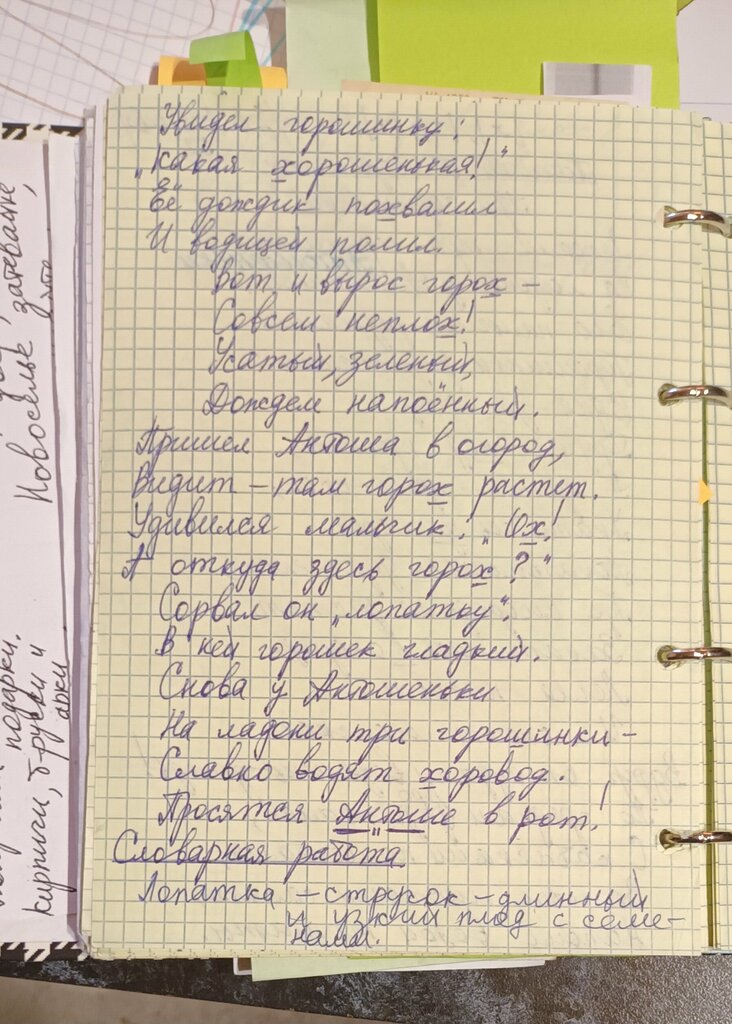 Увидел горошинку:
„Какая хорошенькая!"
Её дождик похвалил
И водицей полил.
Вот и вырос горох –
Совсем неплох!
Усатый, зеленый,
Дождем напоённый.
Пришел Антоша в огород,
Видит – там горох растет.
Удивился мальчик: „Ох!
А откуда здесь горох?"
Сорвал он „лопатку":
В ней горошек гладкий.
Снова у Антошеньки
На ладони три горошинки –
Славно водят хоровод.
Просятся Антоше в рот!
Словарная работа
Лопатка – стручок – длинный
и узкий плод с семе-
нами.
Новоселье затевать
подарки.
кирпичи, бруски и